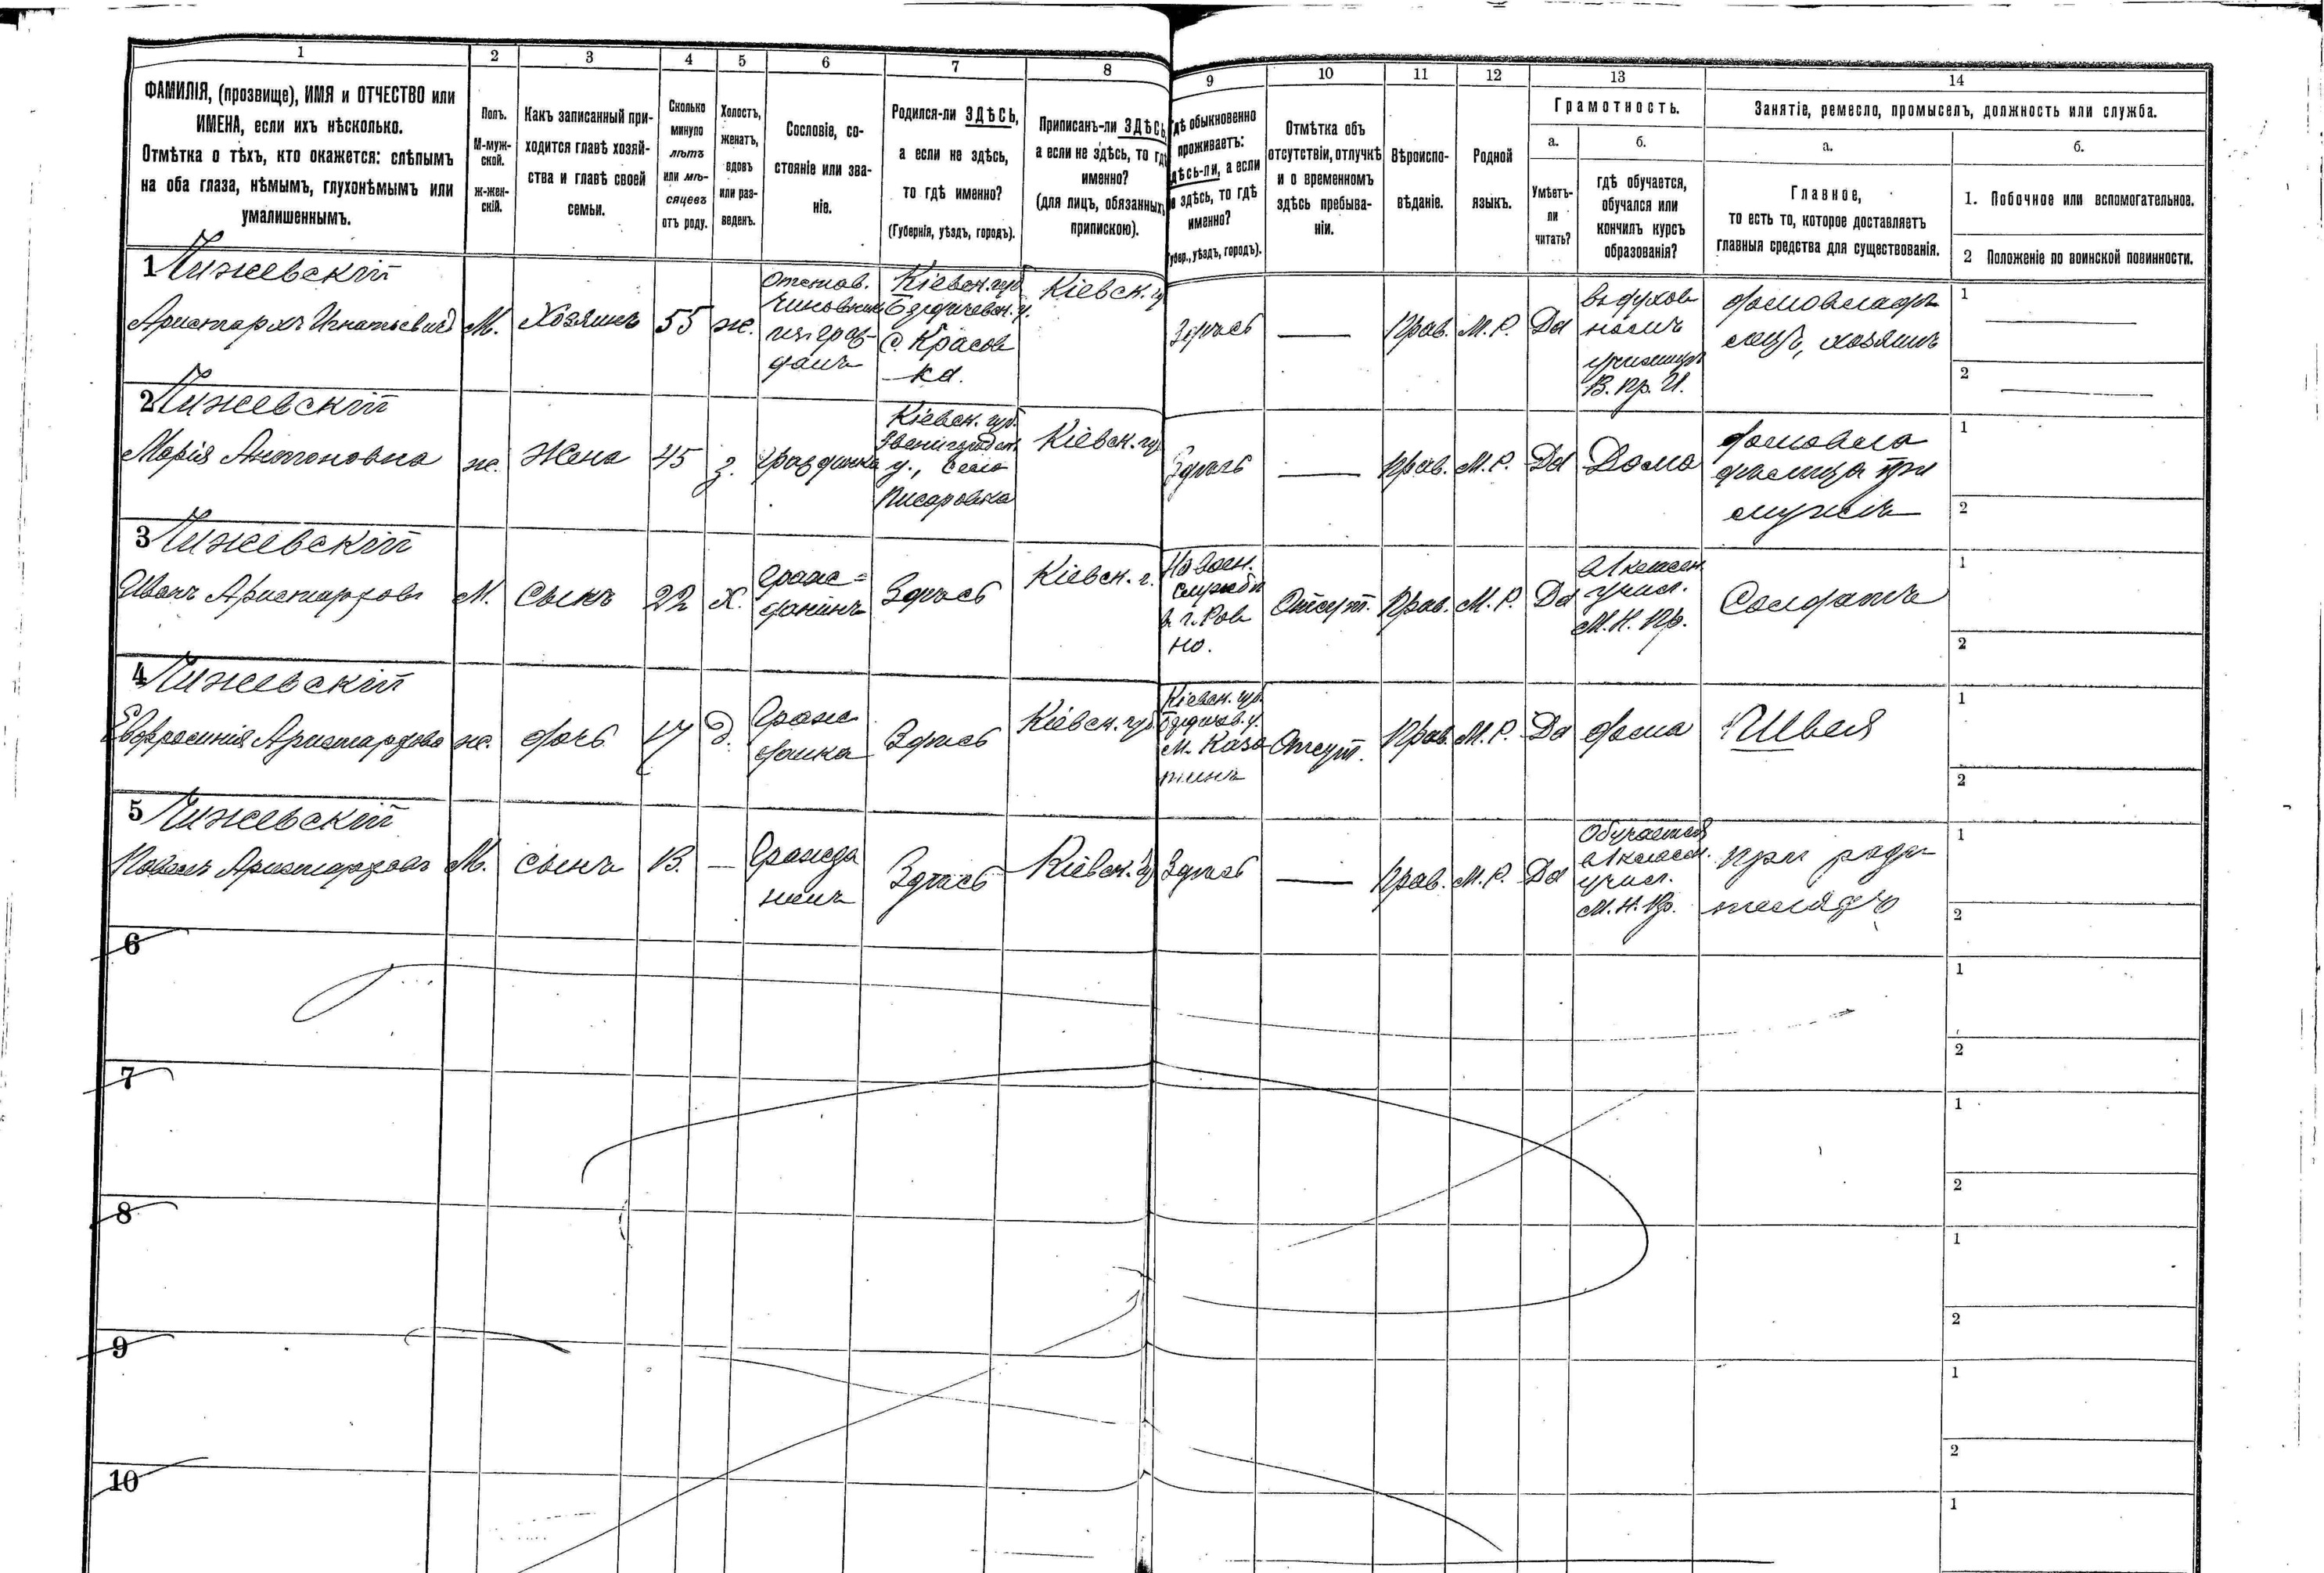 1 2 3 4 5 6 7 8 9 10 11 12 13 14
ФАМИЛІЯ, (прозвище), ИМЯ и ОТЧЕСТВО или
ИМЕНА, если ихъ нѣсколько.
Отмѣтка о тѣхъ, кто окажется: слѣпымъ
на оба глаза, нѣмымъ, глухонѣмымъ или
умалишеннымъ.
Полъ.
М-муж-
ской.
ж-жен-
скій.
Какъ записанный при-
ходится главѣ хозяй-
ства и главѣ своей
семьи.
Сколько
минуло
лѣтъ
или мѣ-
сяцевъ
отъ роду.
Холостъ,
женатъ,
вдовъ
или раз-
веденъ.
Сословіе, со-
стояніе или зва-
ніе.
Родился-ли ЗДѢСЬ,
а если не здѣсь,
то гдѣ именно?
(Губернія, уѣздъ, городъ).
Приписанъ-ли ЗДѢСЬ,
а если не здѣсь, то гдѣ
именно?
(для лицъ, обязанныхъ
припискою).
гдѣ обыкновенно
проживаетъ:
здѣсь-ли, а если
не здѣсь, то гдѣ
именно?
(губер., уѣздъ, городъ).
Отмѣтка объ
отсутствіи, отлучкѣ
и о временномъ
здѣсь пребыва-
ніи.
Вѣроиспо-
вѣданіе.
Родной
языкъ.
Грамотность.
а.
Умѣетъ-
ли
читать?
б.
гдѣ обучается,
обучался или
кончилъ курсъ
образованія?
Занятіе, ремесло, промыселъ, должность или служба.
а.
Главное,
то есть то, которое доставляетъ
главныя средства для существованія.
б.
1. Побочное или вспомогательное.
2 Положеніе по воинской повинности.
1 Чижевскій
Аристархъ Игнатьевичъ
М.
Хозяинъ
55
ж.
Отстав.
чиновникъ
изъ граж-
данъ
Кіевск. губ.
Бердичевск. у.
с. Красов
ка.
Кіевск. г.
Здѣсь
—
Прав.
М. Р.
Да
въ духов
номъ
училищѣ
В. Пр. И.
домовладѣ
лецъ, хозяинъ
1
2
2 Чижевскій
Марія Антоновна
ж.
Жена
45
з.
гражданка
Кіевск. губ.
Звенигородск.
у., село
Писаровка
Кіевск. гу
Здѣсь
—
Прав.
М. Р.
Да
Дома
домовла
дѣлица при
мужѣ
1
2
3 Чижевскій
Иванъ Аристарховъ
М.
Сынъ
22
Х.
граж=
данинъ
Здѣсь
Кіевск. г.
На воен.
службѣ
в г. Ров
но.
Отсут.
Прав.
М. Р.
Да
2хклассн.
учил.
М. Н. Пр.
Солдатъ
1
2
4 Чижевскій
Евфросинія Аристархова
ж.
дочь
17
д.
Граж
данка
Здѣсь
Кіевск. губ
Кіевск. губ.
Бердичев. у.
м. Каза
тинъ
Отсут.
Прав.
М. Р.
Да
дома
Швея
1
2
5 Чижевскій
Павелъ Аристарховъ
М.
сынъ
13.
—
Гражда
нинъ
Здѣсь
Кіевск. гу
Здѣсь
—
Прав.
М. Р.
Да
Обучается
2хклассн.
учил.
М. Н. Пр.
при роди
теляхъ
1
2
6
1
2
7
1
2
8
1
2
9
1
2
10
1